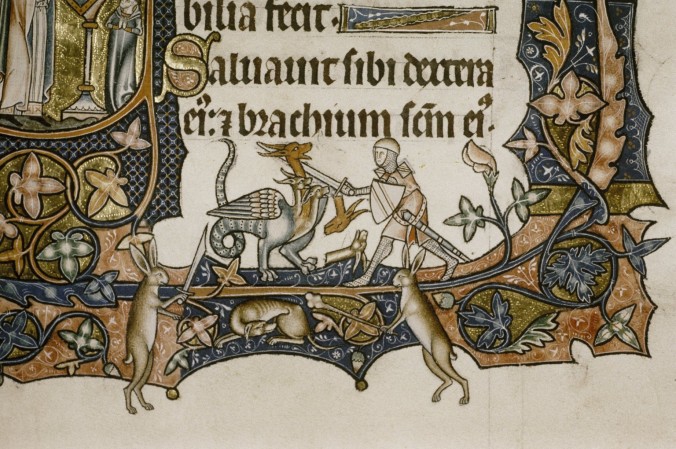 bilia fecit.
Saluauit sibi dextera
eiꝰ: ⁊ brachium scm̄ eiꝰ.